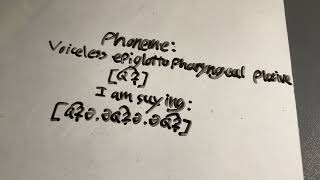 Phoneme:
Voiceless epiglotto pharyngeal plosive
[q͡ʡ]
I am saying:
[q͡ʡə.əq͡ʡə.əq͡ʡ]